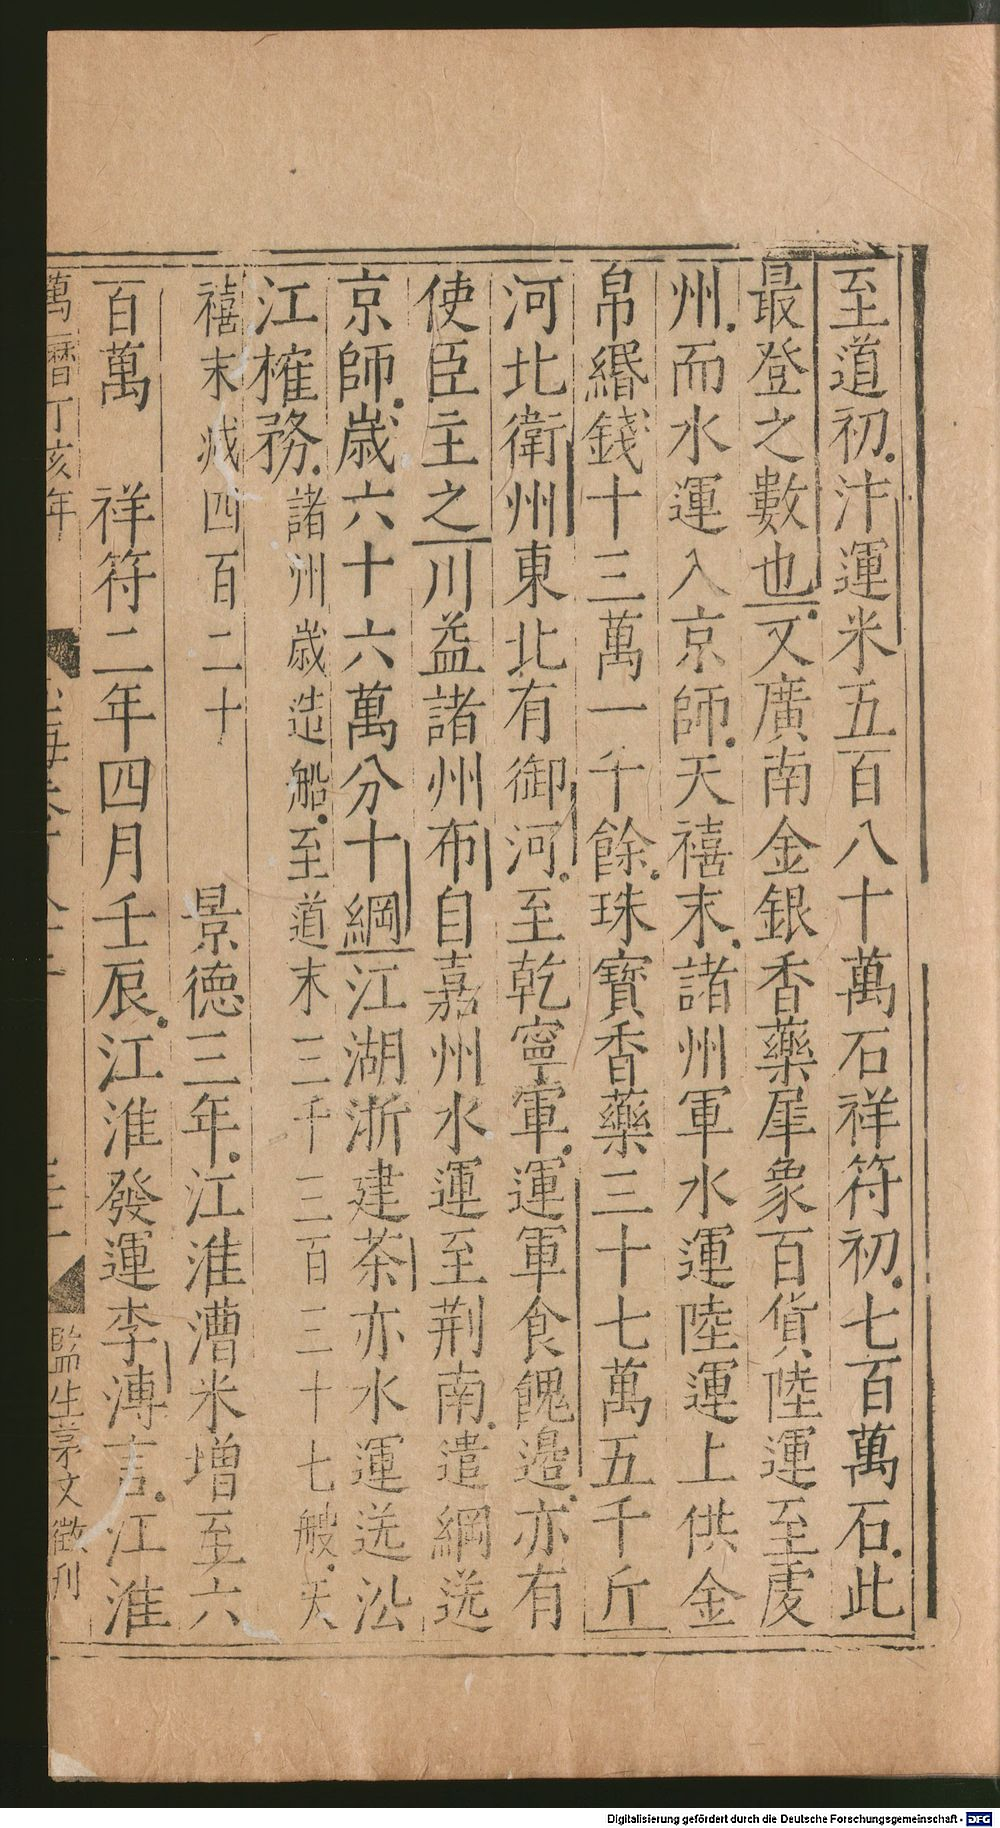 至道初汴運米五百八十萬石祥符初七百萬石此
最登之數也又廣南金銀香藥犀象百貨陸運至虔
州而水運入京師天禧末諸州軍水運陸運上供金
帛緡錢十三萬一千餘珠寶香藥三十七萬五千斤
河北衛州東北有御河至乾寧軍運軍食餽邊亦有
使臣主之川益諸州布自嘉州水運至荆南遣綱送
京師歲六十六萬分十綱江湖浙建茶亦水運送沿
江榷務諸州歲造船至道末三千三百三十七艘天
禧末减四百二十 景德三年江淮漕米增至六
百萬 祥符二年四月壬辰江淮發運李溥言江淮
萬曆丁亥年
監生茅文徵刋
Digitalisierung gefördert durch die Deutsche Forschungsgemeinschaft - DFG